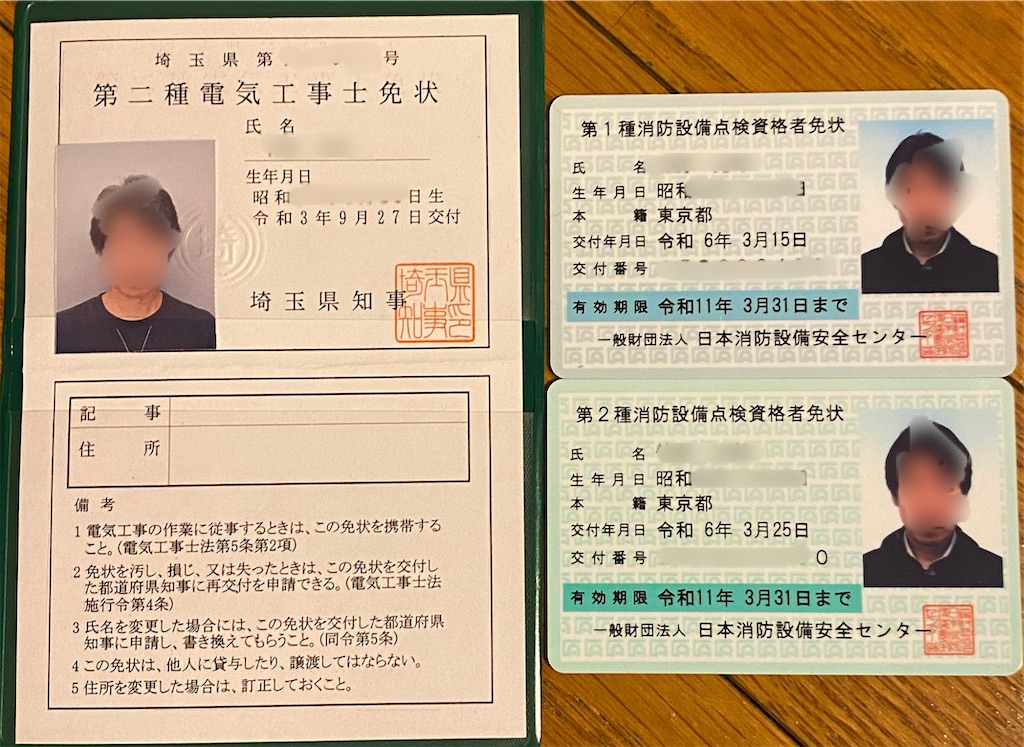 埼玉県第 号
第二種電気工事士免状
氏名
生年月日
昭和 日生
令和3年9月27日交付
埼玉県知事
埼玉県知事印
記事
住所
備考
1 電気工事の作業に従事するときは、この免状を携帯する
こと。(電気工事士法第5条第2項)
2 免状を汚し、損じ、又は失ったときは、この免状を交付し
た都道府県知事に再交付を申請できる。(電気工事士法
施行令第4条)
3 氏名を変更した場合には、この免状を交付した都道府県
知事に申請し、書き換えてもらうこと。(同令第5条)
4 この免状は、他人に貸与したり、譲渡してはならない。
5 住所を変更した場合は、訂正しておくこと。
第1種消防設備点検資格者免状
氏名
生年月日 昭和 日
本籍 東京都
交付年月日 令和 6年 3月15日
交付番号
有効期限 令和11年 3月31日まで
一般財団法人 日本消防設備安全センター
第2種消防設備点検資格者免状
氏名
生年月日 昭和
本籍 東京都
交付年月日 令和 6年 3月25日
交付番号 0
有効期限 令和11年 3月31日まで
一般財団法人 日本消防設備安全センター